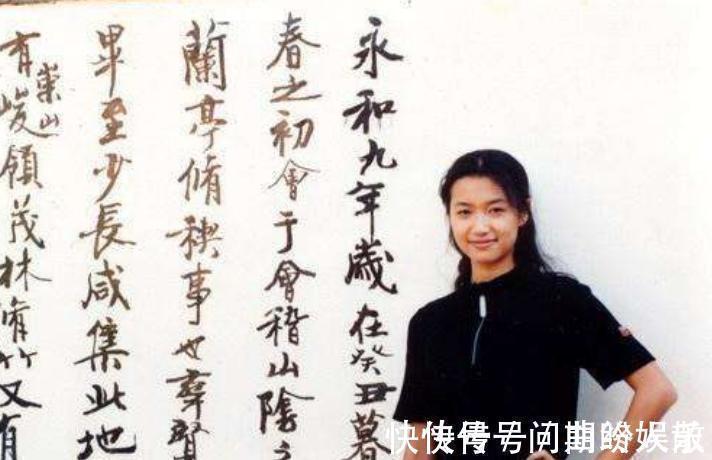 永和九年歲在癸丑暮
春之初會于會稽山陰之
蘭亭脩稧事也羣賢
畢至少長咸集此地
有崇山峻領茂林脩竹又有
快传号